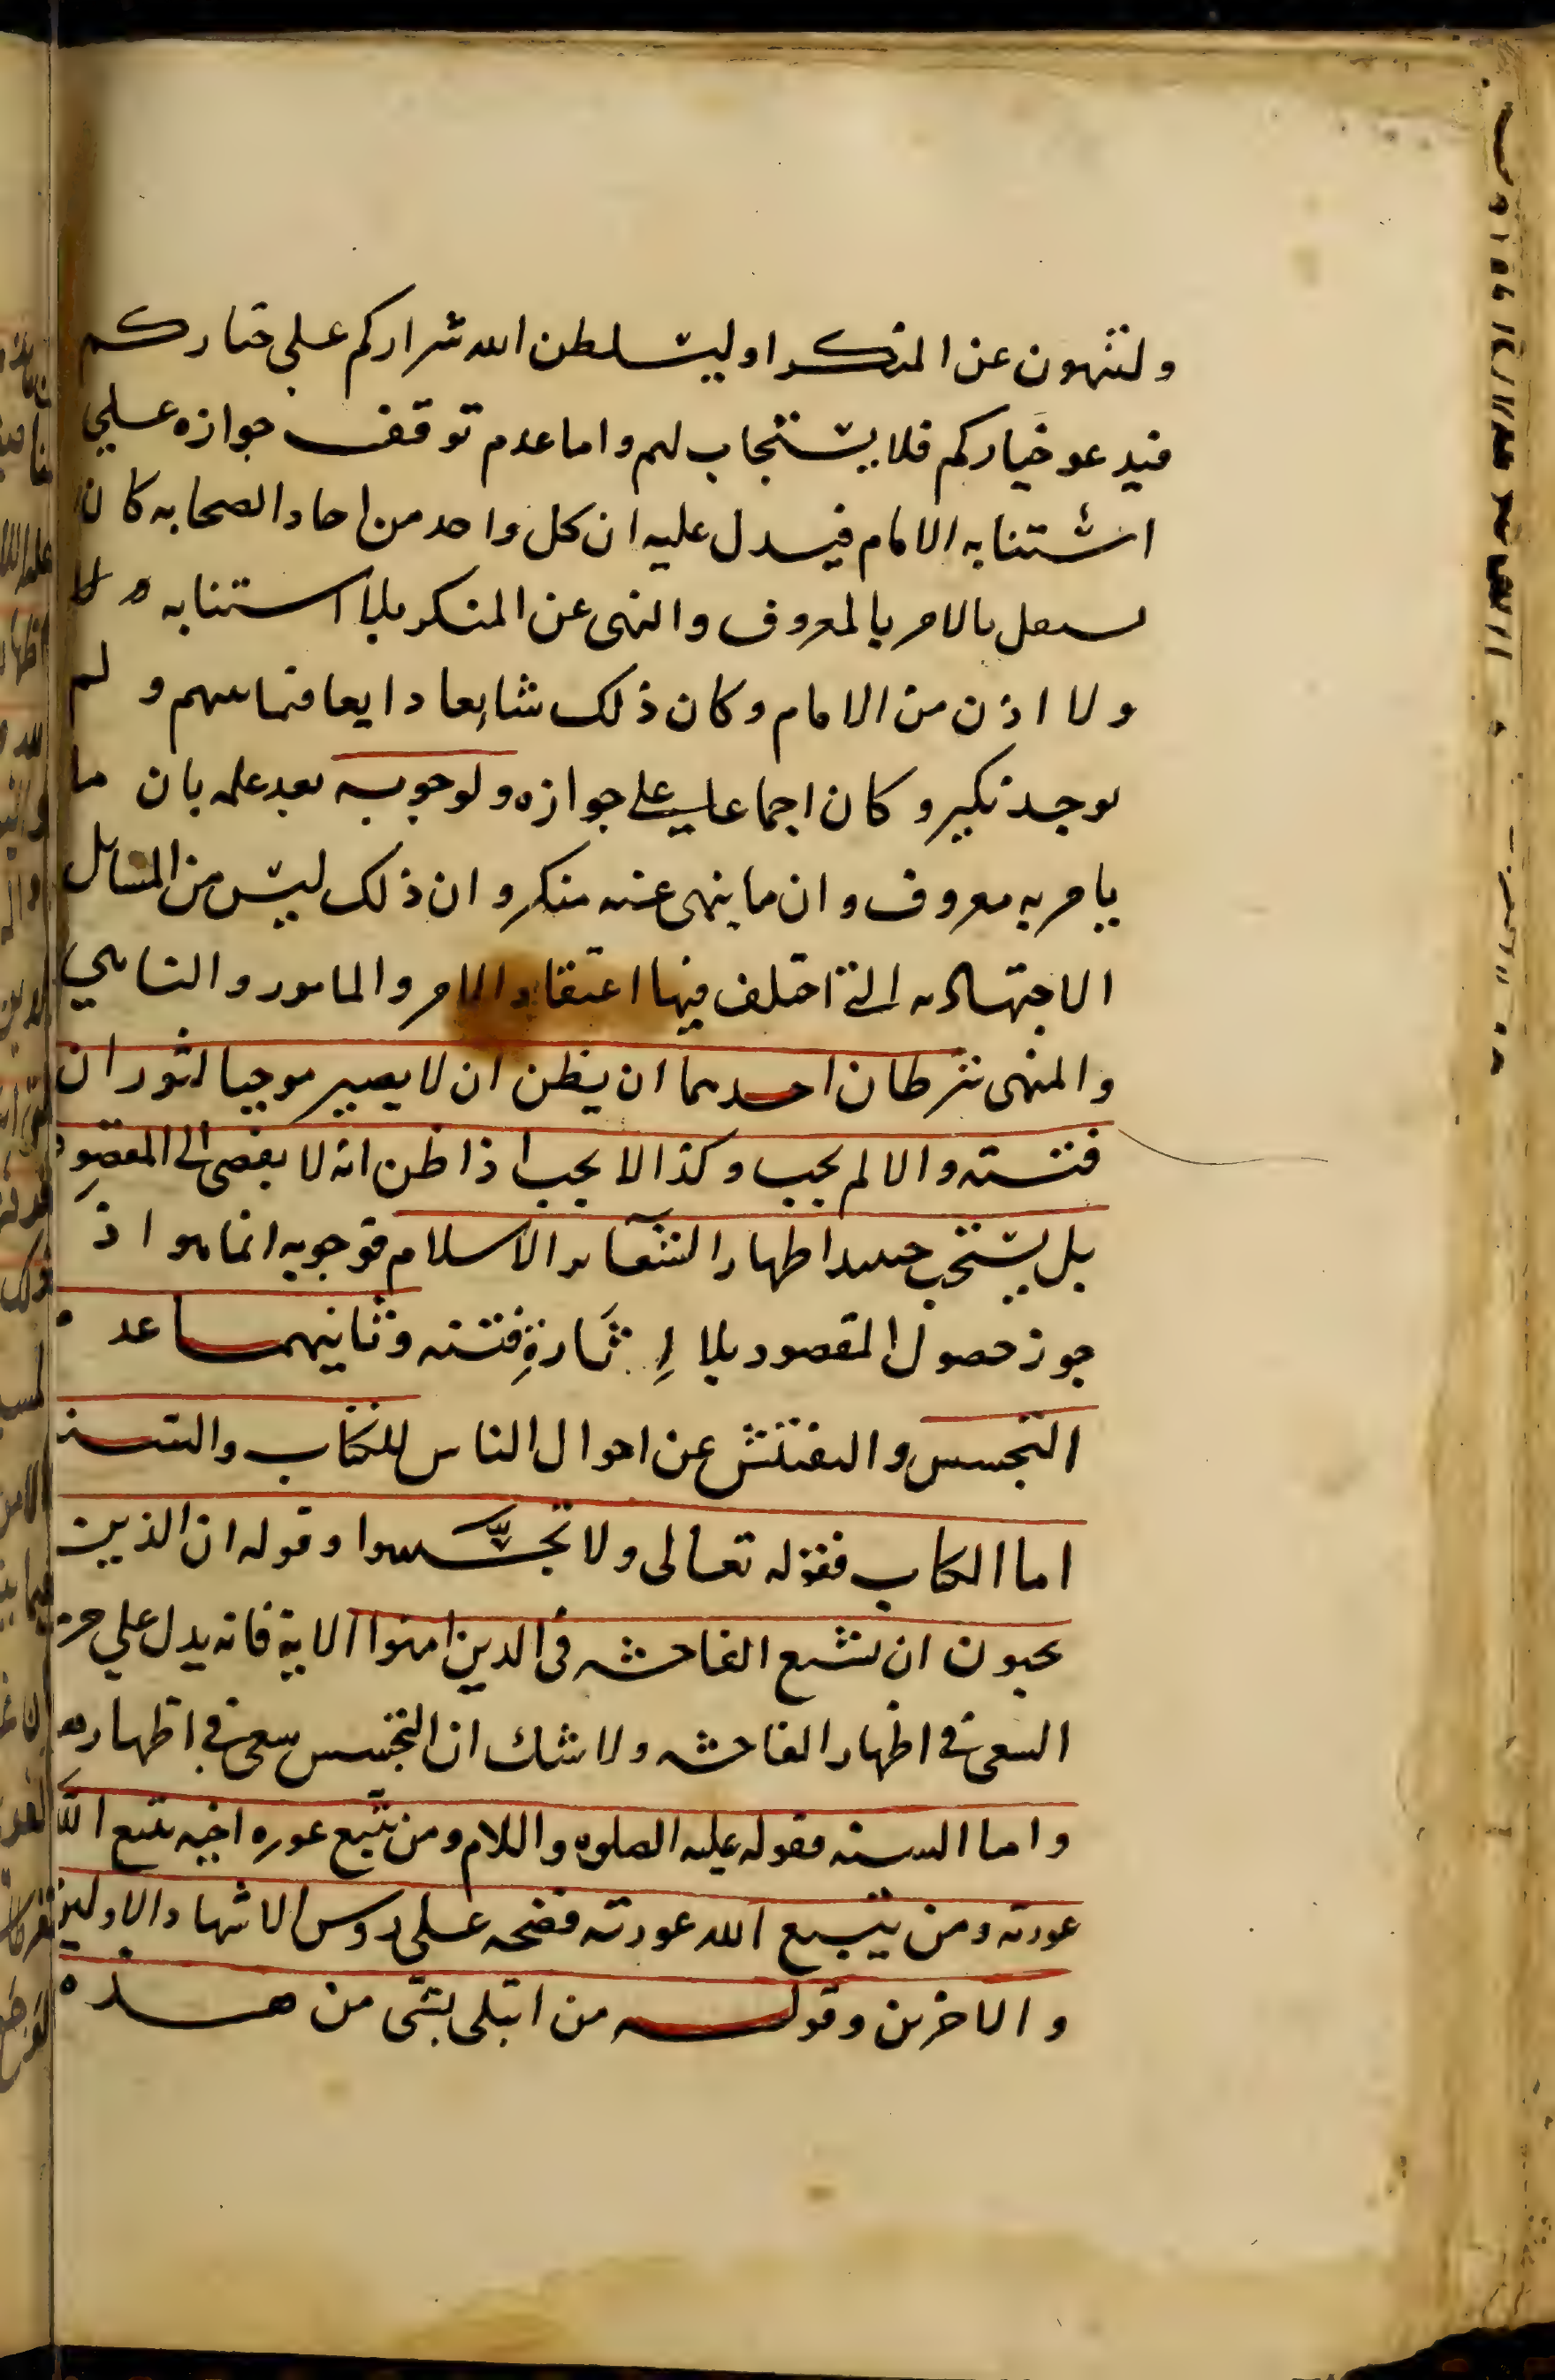 ولتنهون عن المنكر او ليسلطن الله شراركم على خياركم
فيدعو خياركم فلا يستجاب لهم واما عدم توقف جوازه علي
استنابه الامام فيدل عليه ان كل واحد من احاد الصحابه كان
بالامر بالمعروف والنهى عن المنكر بلا استنابه
ولا اذن من الامام وكان ذلك شايعا ذايعا فيما بينهم و لم
يوجد نكير وكان اجماعا على جوازه ولوجوبه بعد علمه بان ما
يامر به معروف وان ما ينهى عنه منكر وان ذلك ليس من المسايل
الاجتهاديه التى اختلف فيها اعتقاد الامر والمامور والناهي
والمنهى شرطان احدهما ان يظن ان لا يصير موجبا لثوران
فتنته والا لم يجب وكذا لا يجب اذا ظن انه لا يفضى الى المقصود
بل يستحب حينيد اظهارا لشعاير الاسلام فوجوبه انما هو اذ
جوز حصول المقصود بلا إثارةِ فتنه وثانيهما عد
التجسس والتفتيش عن احوال الناس للكتاب والسنه
اما الكتاب فقوله تعالى ولا تجسّسوا وقوله ان الذين
يحبون ان تشيع الفاحشه فى الذين امنوا الاية فانه يدل علي
السعى فى اظهار الفاحشه ولا شك ان التجسس سعى في اظهارها
واما السنه فقوله عليه الصلوه واللام ومن تتبع عوره اخيه تتبع الله
عورته ومن يتبع الله عورته فضحه على روس الاشهاد الاولين
والاخرين وقوله من ابتلى بشى من هذه